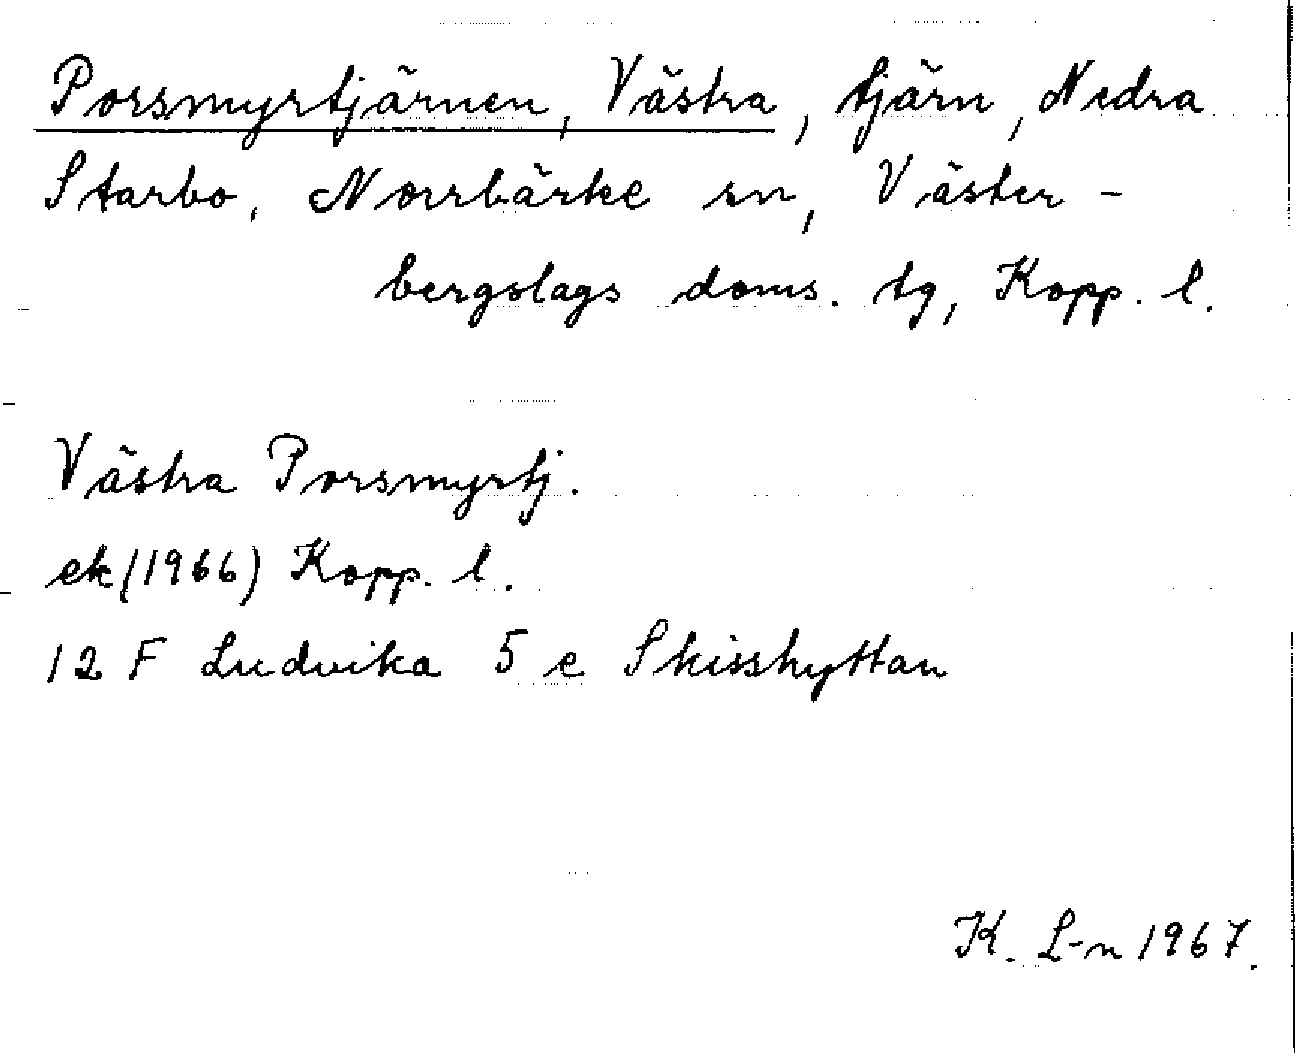 Porsmyrtjärnen, Västra, tjärn, Nedra
Starbo, Norrbärke sn, Väster-
bergslags doms. tg, Kopp. l.
Västra Porsmyrtj.
ek (1966) Kopp. l.
12 F Ludvika 5 e Skisshyttan
K. L-n 1967.